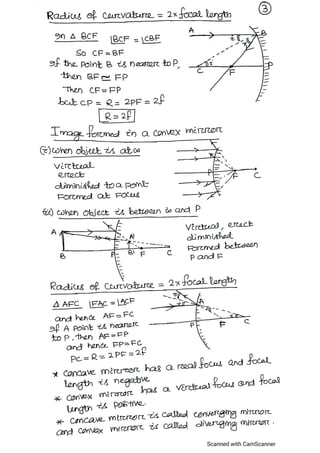 ③
Radius of Curvature = 2×focal length
In Δ BCF ∠BCF = ∠CBF
So CF = BF
If the Point B is nearer to P,
then BF ≃ FP
Then CF = FP
but CP = R = 2PF = 2f
R = 2f
Image formed in a convex mirror
(i) when object is at ∞
virtual
erect
diminished to a point
Formed at Focus
(ii) when object is between ∞ and P
Virtual, erect
diminished
Formed between
P and F
Radius of Curvature = 2×focal length
Δ AFC ∠FAC = ∠ACF
and hence AF = FC
If A Point is nearer
to P, then AF = FP
and hence FP = FC
PC = R = 2PF = 2f
* Concave mirror has a real focus and focal
length is negative
* Convex mirror has a virtual focus and focal
length is positive.
* Concave mirror is called converging mirror
and convex mirror is called diverging mirror.
Scanned with CamScanner